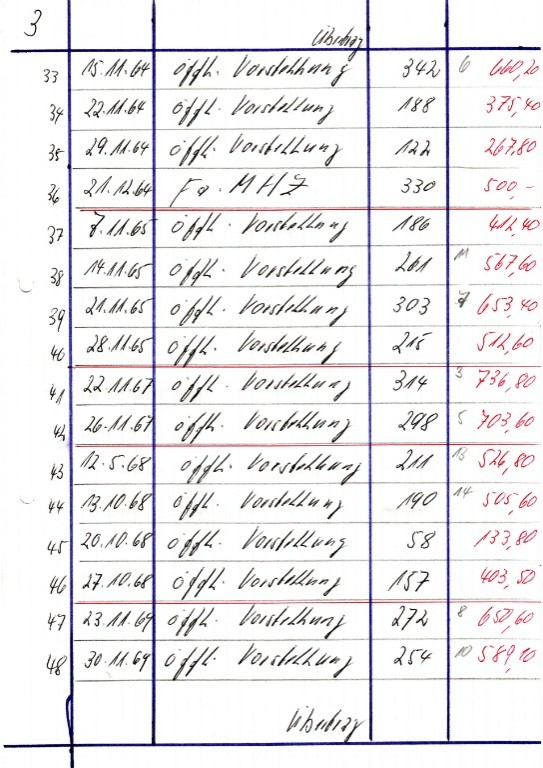 3
Übertrag
33 15.11.64 öfftl. Vorstellung 342 6 660,20
34 22.11.64 öfftl. Vorstellung 188 375,40
35 29.11.64 öfftl. Vorstellung 122 267,80
36 21.12.64 Fa. MHZ 330 500,-
37 7.11.65 öfftl. Vorstellung 186 412,40
38 14.11.65 öfftl. Vorstellung 261 11 567,60
39 21.11.65 öfftl. Vorstellung 303 7 653,40
40 28.11.65 öfftl. Vorstellung 215 512,60
41 22.11.67 öfftl. Vorstellung 314 3 736,80
42 26.11.67 öfftl. Vorstellung 298 5 703,60
43 12.5.68 öfftl. Vorstellung 211 13 526,80
44 13.10.68 öfftl. Vorstellung 190 14 505,60
45 20.10.68 öfftl. Vorstellung 58 133,80
46 27.10.68 öfftl. Vorstellung 157 403,50
47 23.11.69 öfftl. Vorstellung 272 8 650,60
48 30.11.69 öfftl. Vorstellung 254 10 589,10
Übertrag